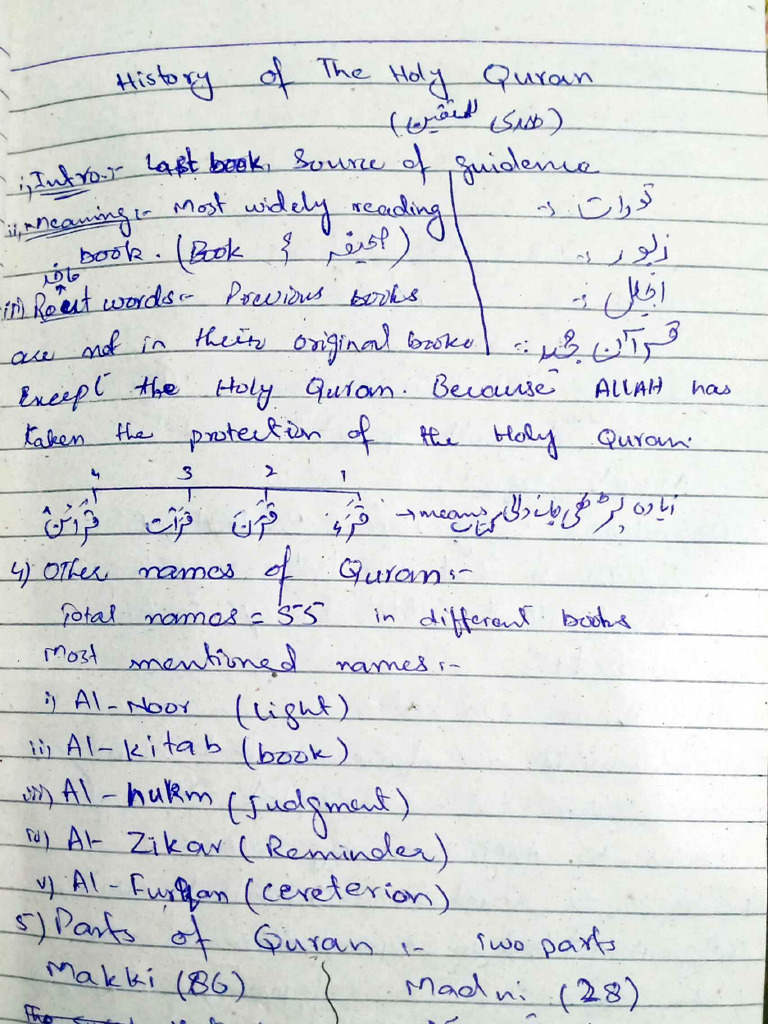 History of The Holy Quran
(ھدی للمتقین)
i, Intro:- Last book, Source of guidence
ii, Meaning:- Most widely reading
book. (Book &
iii) Root words:- Previous books
are not in their original books
تورات :-
زبور :-
انجیل :-
قرآن مجید :-
Except the Holy Quran. Because ALLAH has
taken the protection of the Holy Quran.
4 3 2 1
→ means زیادہ پڑھی جانے والی کتاب
4) Other names of Quran:-
Total names = 55 in different books
Most mentioned names:-
i) Al-Noor (light)
ii, Al-kitab (book)
iii) Al-hukm (judgment)
iv) Al- Zikar (Reminder)
v) Al-Furqan (cereterion)
5) Parts of Quran:- Two parts
Makki (86) Madni (28)